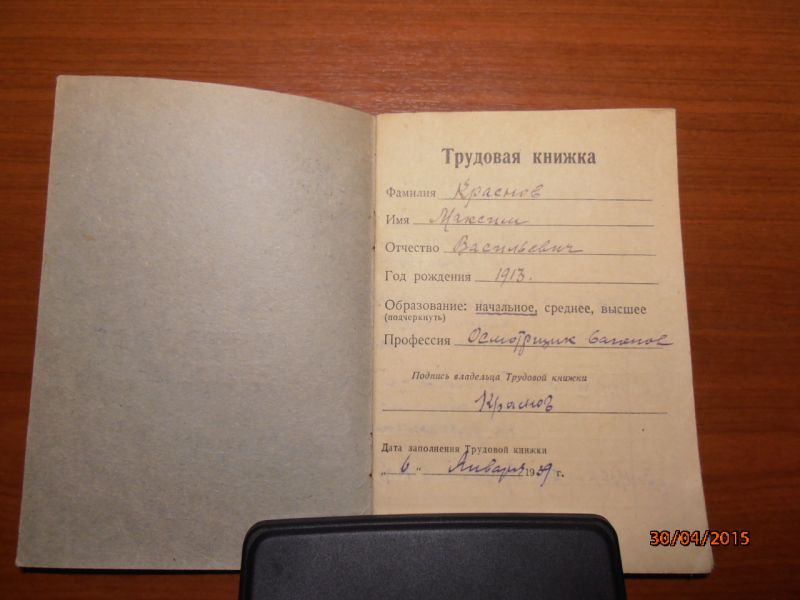 Трудовая книжка
Фамилия Краснов
Имя Максим
Отчество Васильевич
Год рождения 1913.
Образование: начальное, среднее, высшее
(подчеркнуть)
Профессия Осмотрщик вагонов
Подпись владельца Трудовой книжки
Краснов
Дата заполнения Трудовой книжки
„ 6 “ Января 1939 г.
30/04/2015